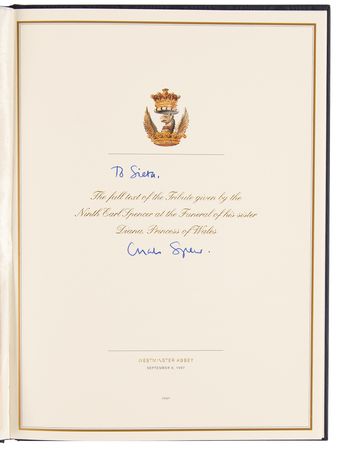 To Sieta.
The full text of the Tribute given by the
Ninth Earl Spencer at the Funeral of his sister
Diana, Princess of Wales
Charles Spencer.
WESTMINSTER ABBEY
SEPTEMBER 6, 1997